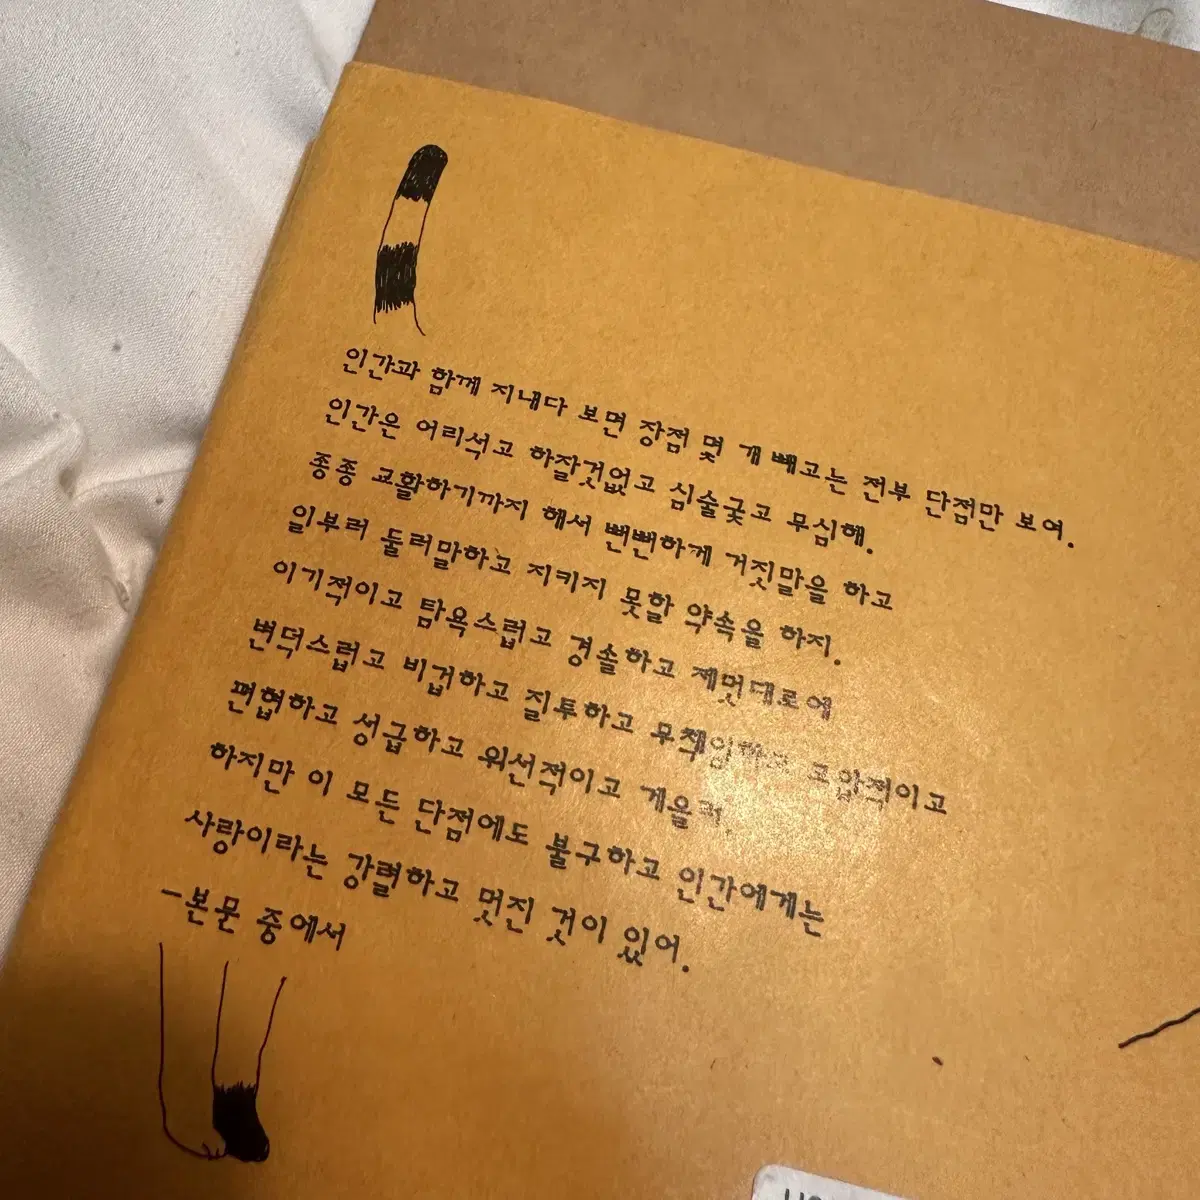 인간과 함께 지내다 보면 장점 몇 개 빼고는 전부 단점만 보여.
인간은 어리석고 하잘것없고 심술궂고 무심해.
종종 교활하기까지 해서 뻔뻔하게 거짓말을 하고
일부러 둘러말하고 지키지 못할 약속을 하지.
이기적이고 탐욕스럽고 경솔하고 제멋대로에
변덕스럽고 비겁하고 질투하고 무책임하고 고압적이고
편협하고 성급하고 위선적이고 게을러.
하지만 이 모든 단점에도 불구하고 인간에게는
사랑이라는 강렬하고 멋진 것이 있어.
-본문 중에서